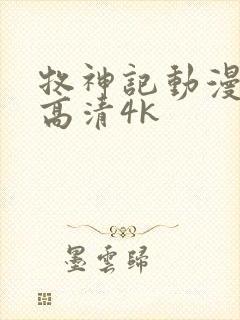 牧神記動漫
高清4K
墨雲歸